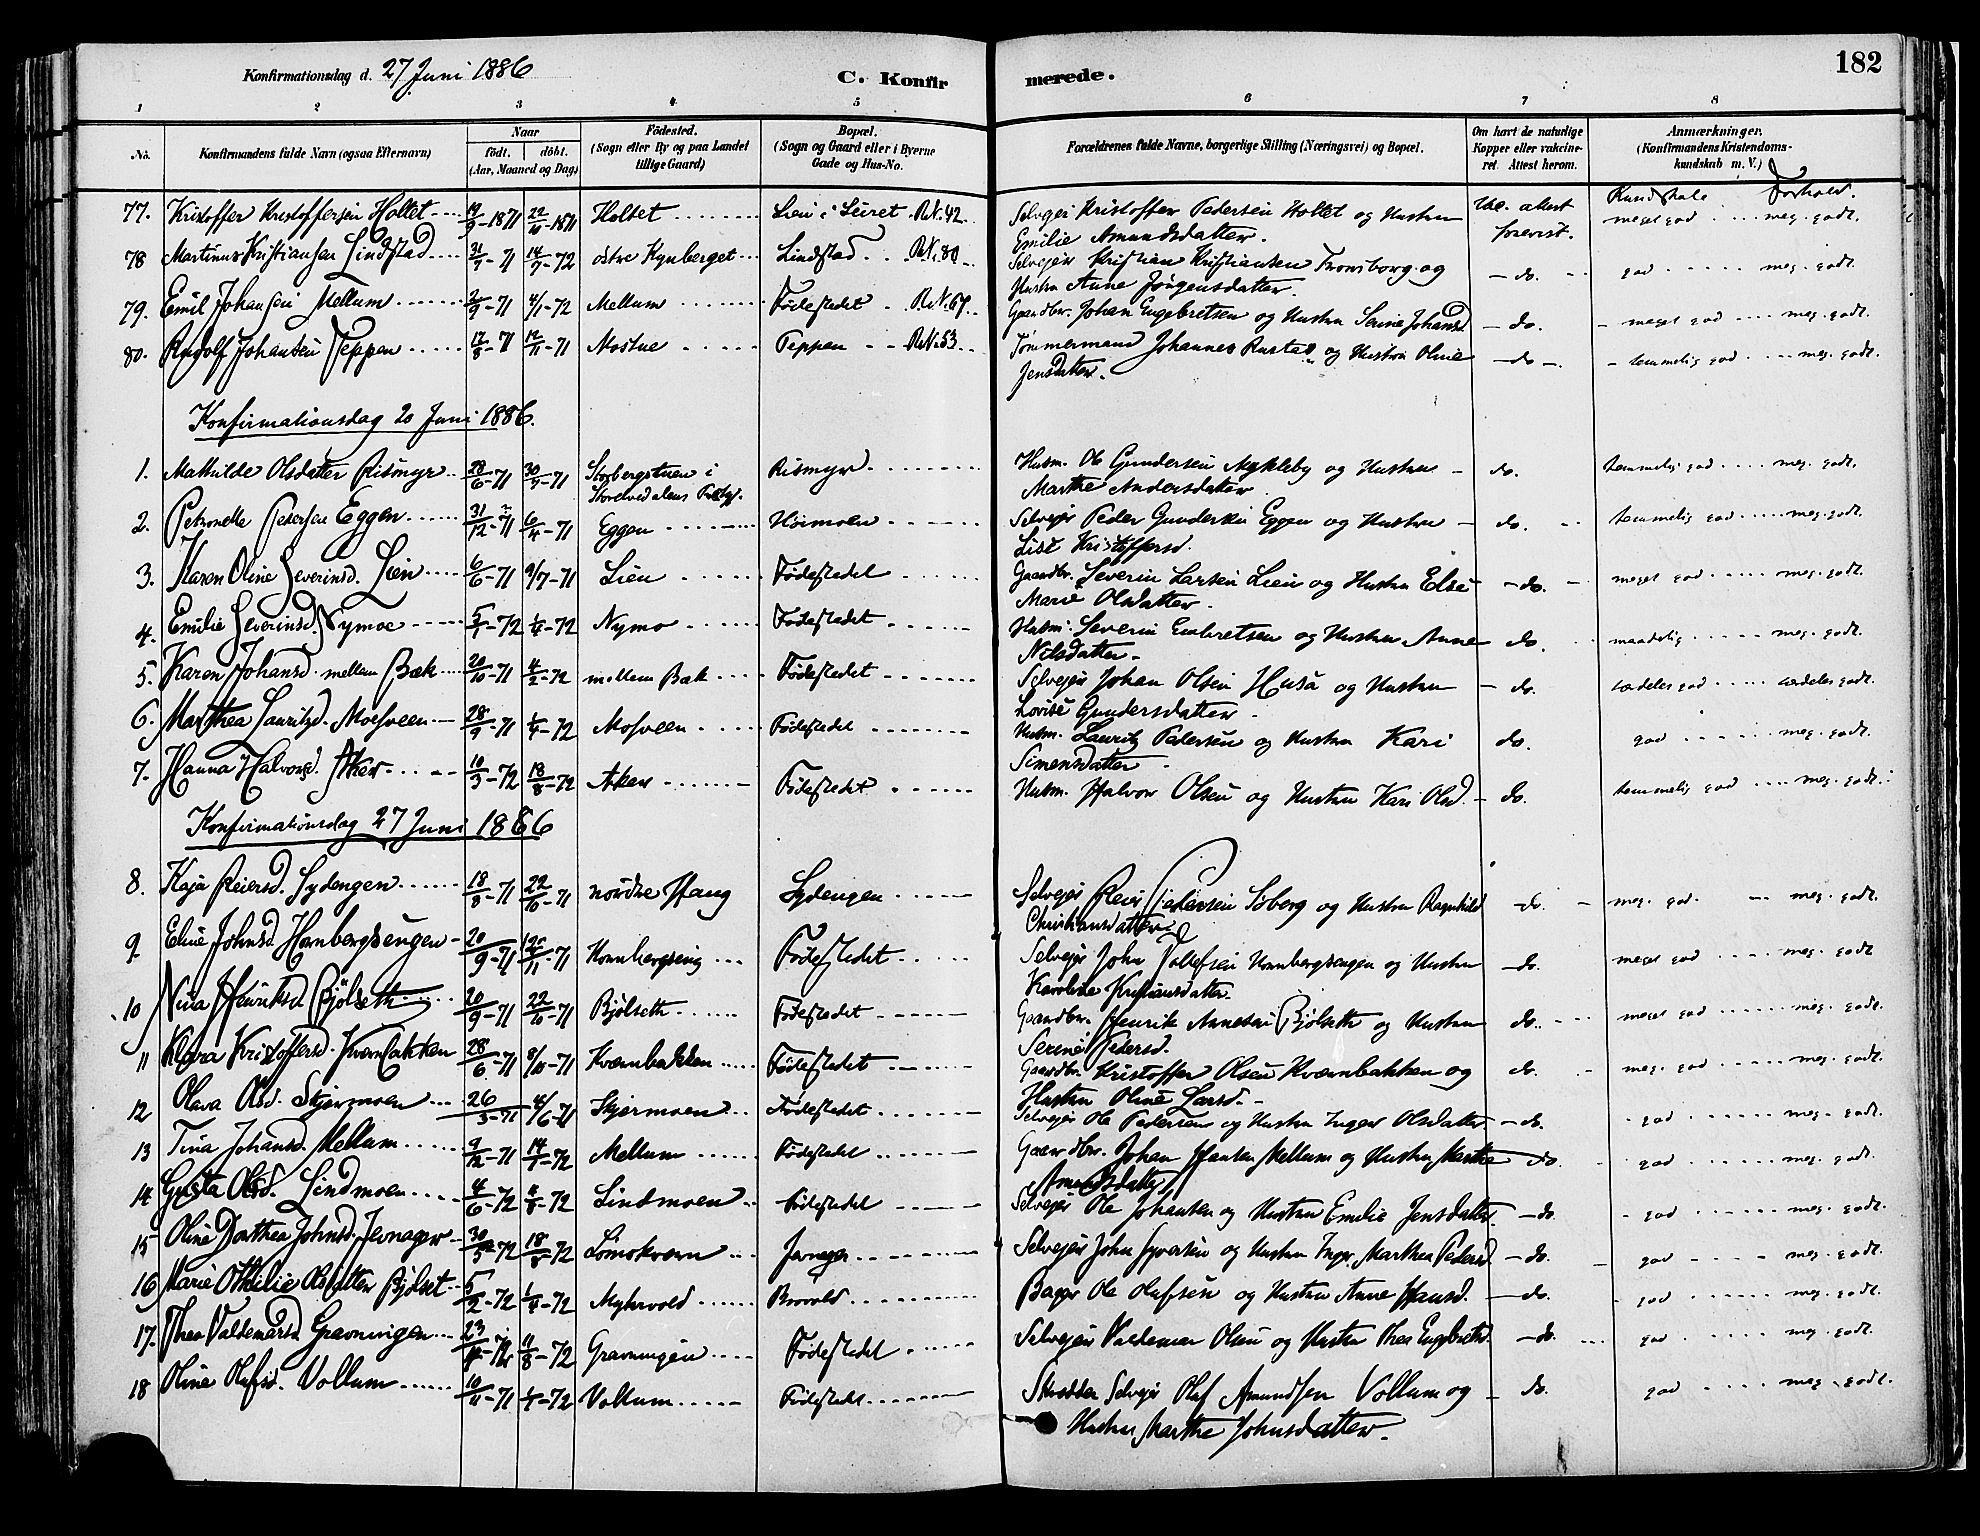 182
Konfirmationsdag d. 27 Juni 1886 C. Konfirmerede.
1 2 3 4 5 6 7 8
No. Konfirmandens fulde Navn (ogsaa Efternavn) Naar født. døbt. (Aar, Maaned og Dag) Fødested. (Sogn eller By og paa Landet tillige Gaard) Bopæl. (Sogn og Gaard eller i Byerne Gade og Hus-No.) Forældrenes fulde Navne, borgerlige Stilling (Næringsvei) og Bopæl. Om havt de naturlige Kopper eller vakcineret. Attest herom. Anmærkninger. (Konfirmandens Kristendomskundskab m. V.)
Kundskab Forhold.
77. Kristoffer Kristoffersen Holtet 19/9-1871 22/10-1871 Holtet Lien i Luret R.N.42. Selveier Kristoffer Pedersen Holtet og Hustru vac. attest meget god meg. godt.
Emilie Amundsdatter. forevist.
78 Martinus Kristiansen Lindstad 31/7-71 14/7-72 østre Kynberget Lindstad R.N.80 Selveier Kristian Kristiansen Fronsborg og do. god meg. godt.
Hustru Anne Jørgensdatter.
79. Emil Johansen Mellum 2/9-71 4/1-72 Mellum Fødestedet R.N.67. Gaardbr. Johan Engebretsen og Hustru Serine Johansd. do. meget god meg. godt.
80. Rudolf Johansen Teppen 17/8-71 12/11-71 Mostue Teppen R.N.53 Tømmermand Johannes Rustad og Hustru Oline do. temmelig god meg. godt.
Jensdatter.
Konfirmationsdag 20 Juni 1886.
1. Mathilde Olsdatter Rismyr 28/6-71 30/7-71 Storbergstuen i Rismyr Husm. Ole Gundersen Mykleby og Hustru do. temmelig god meg. godt.
Storelvedalens Præstgj. Marthe Andersdatter
2. Petronelle Pedersen Eggen 31/12-71 6/4-71 Eggen Høimoen Selveier Peder Gundersen Eggen og Hustru do. temmelig god meg. godt.
Lise Kristoffersd.
3. Karen Oline Severinsd. Lien 6/6-71 9/7-71 Lien Fødestedet Gaardbr. Severin Larsen Lien og Hustru Else do. meget god meg. godt.
Marie Olsdatter.
4. Emilie Severinsd. Nymoe 5/1-72 1/4-72 Nymo Fødestedet Husm. Severin Embretsen og Hustru Anne do. maadelig meg. godt.
Nilsdatter
5. Karen Johansd. mellem Bæk 20/10-71 4/2-72 mellem Bæk Fødestedet Selveier Johan Olsen Huså og Hustru do. særdeles god særdeles godt.
Lovise Gundersdatter
6. Marthea Lauritzd. Mosveen 28/9-71 1/4-72 Mosveen Fødestedet Husm. Lauritz Pedersen og Hustru Kari do. god meg. godt.
Simensdatter
7. Hanna Halvorsd. Aker 10/3-72 18/8-72 Aker Fødestedet Husm. Halvor Olsen og Hustru Kari Olsd. do. temmelig god meg. godt.
Konfirmationsdag 27 Juni 1886
8. Kaja Reiersd. Lydengen 18/8-71 22/10-71 nordre Haug Lydengen Selveier Reier Pedersen Soberg og Hustru Ragnhild do. meg. god. meg. godt.
Christiansdatter
9. Eline Johnsd. Hornbergsengen 20/9-71 /11-71 Hornbergseng Fødestedet Selveier John Tollefsen Hornbergsengen og Hustru do. meget god meg. godt
Karoline Kristiansdatter
10 Nina Henriksd. Bjølseth 20/9-71 22/10-71 Bjølseth Fødestedet Gaardbr. Henrik Arnesen Bjølseth og Hustru do. meget god meg. godt.
Serine Pedersd.
11 Klara Kristoffersd. Kværnbakken 28/6-71 8/10-71 Kværnbakken Fødestedet Gaardbr. Kristoffer Olsen Kværnbakken og do. meg. god meg. godt.
Hustru Oline Larsd.
12 Olava Olsd. Skjærmoen 26/3-71 4/6-71 Skjermoen Fødestedet Selveier Ole Pedersen og Hustru Inger Olsdatter do. god meg. godt.
13 Tina Johansd. Mellum 9/12-71 14/7-72 Mellum Fødestedet Gaardbr. Johan Hansen Mellum og Hustru Marthe do. god meg. godt.
Amundsdatter
14 Gusta Olsd. Lindmoen 4/6-72 4/8-72 Lindmoen Fødestedet Selveier Ole Johansen og Hustru Emilie Jensdatter do. god meg. godt.
15 Oline Dorthea Johnsd. Jevnager 30/3-72 18/8-72 Lømokværn Jevnager Selveier John Syversen og Hustru Ingr. Marthea Pedersd. do. god meg. godt.
16 Marie Othilie Olsdatter Bjølset 5/2-72 1/4-72 Myhrvold Brovold Bager Ole Olafsen og Hustru Anne Hansd. do. god meg. godt.
17. Thea Valdemarsd. Gravningen 23/4-72 11/8-72 Gravningen Fødestedet Selveier Valdemar Olsen og Hustru Thea Engebretsd. do. god meg. godt.
18 Oline Olafsd. Vollum 10/11-71 1/4-72 Vollum Fødestedet Skrædder Selveier Olaf Amundsen Vollum og do. god meg. godt.
Hustru Marthe Johnsdatter.